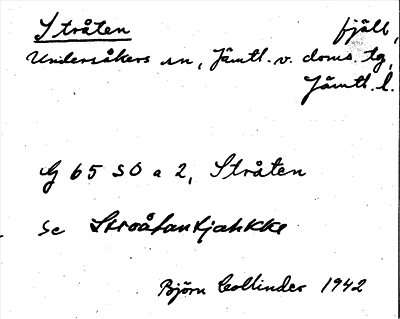 Stråten fjäll,
Undersåkers sn, Jämtl. v. doms. tg,
Jämtl. l.
G 65 SO a 2, Stråten
se Stroåtantjahkke
Björn Collinder 1942